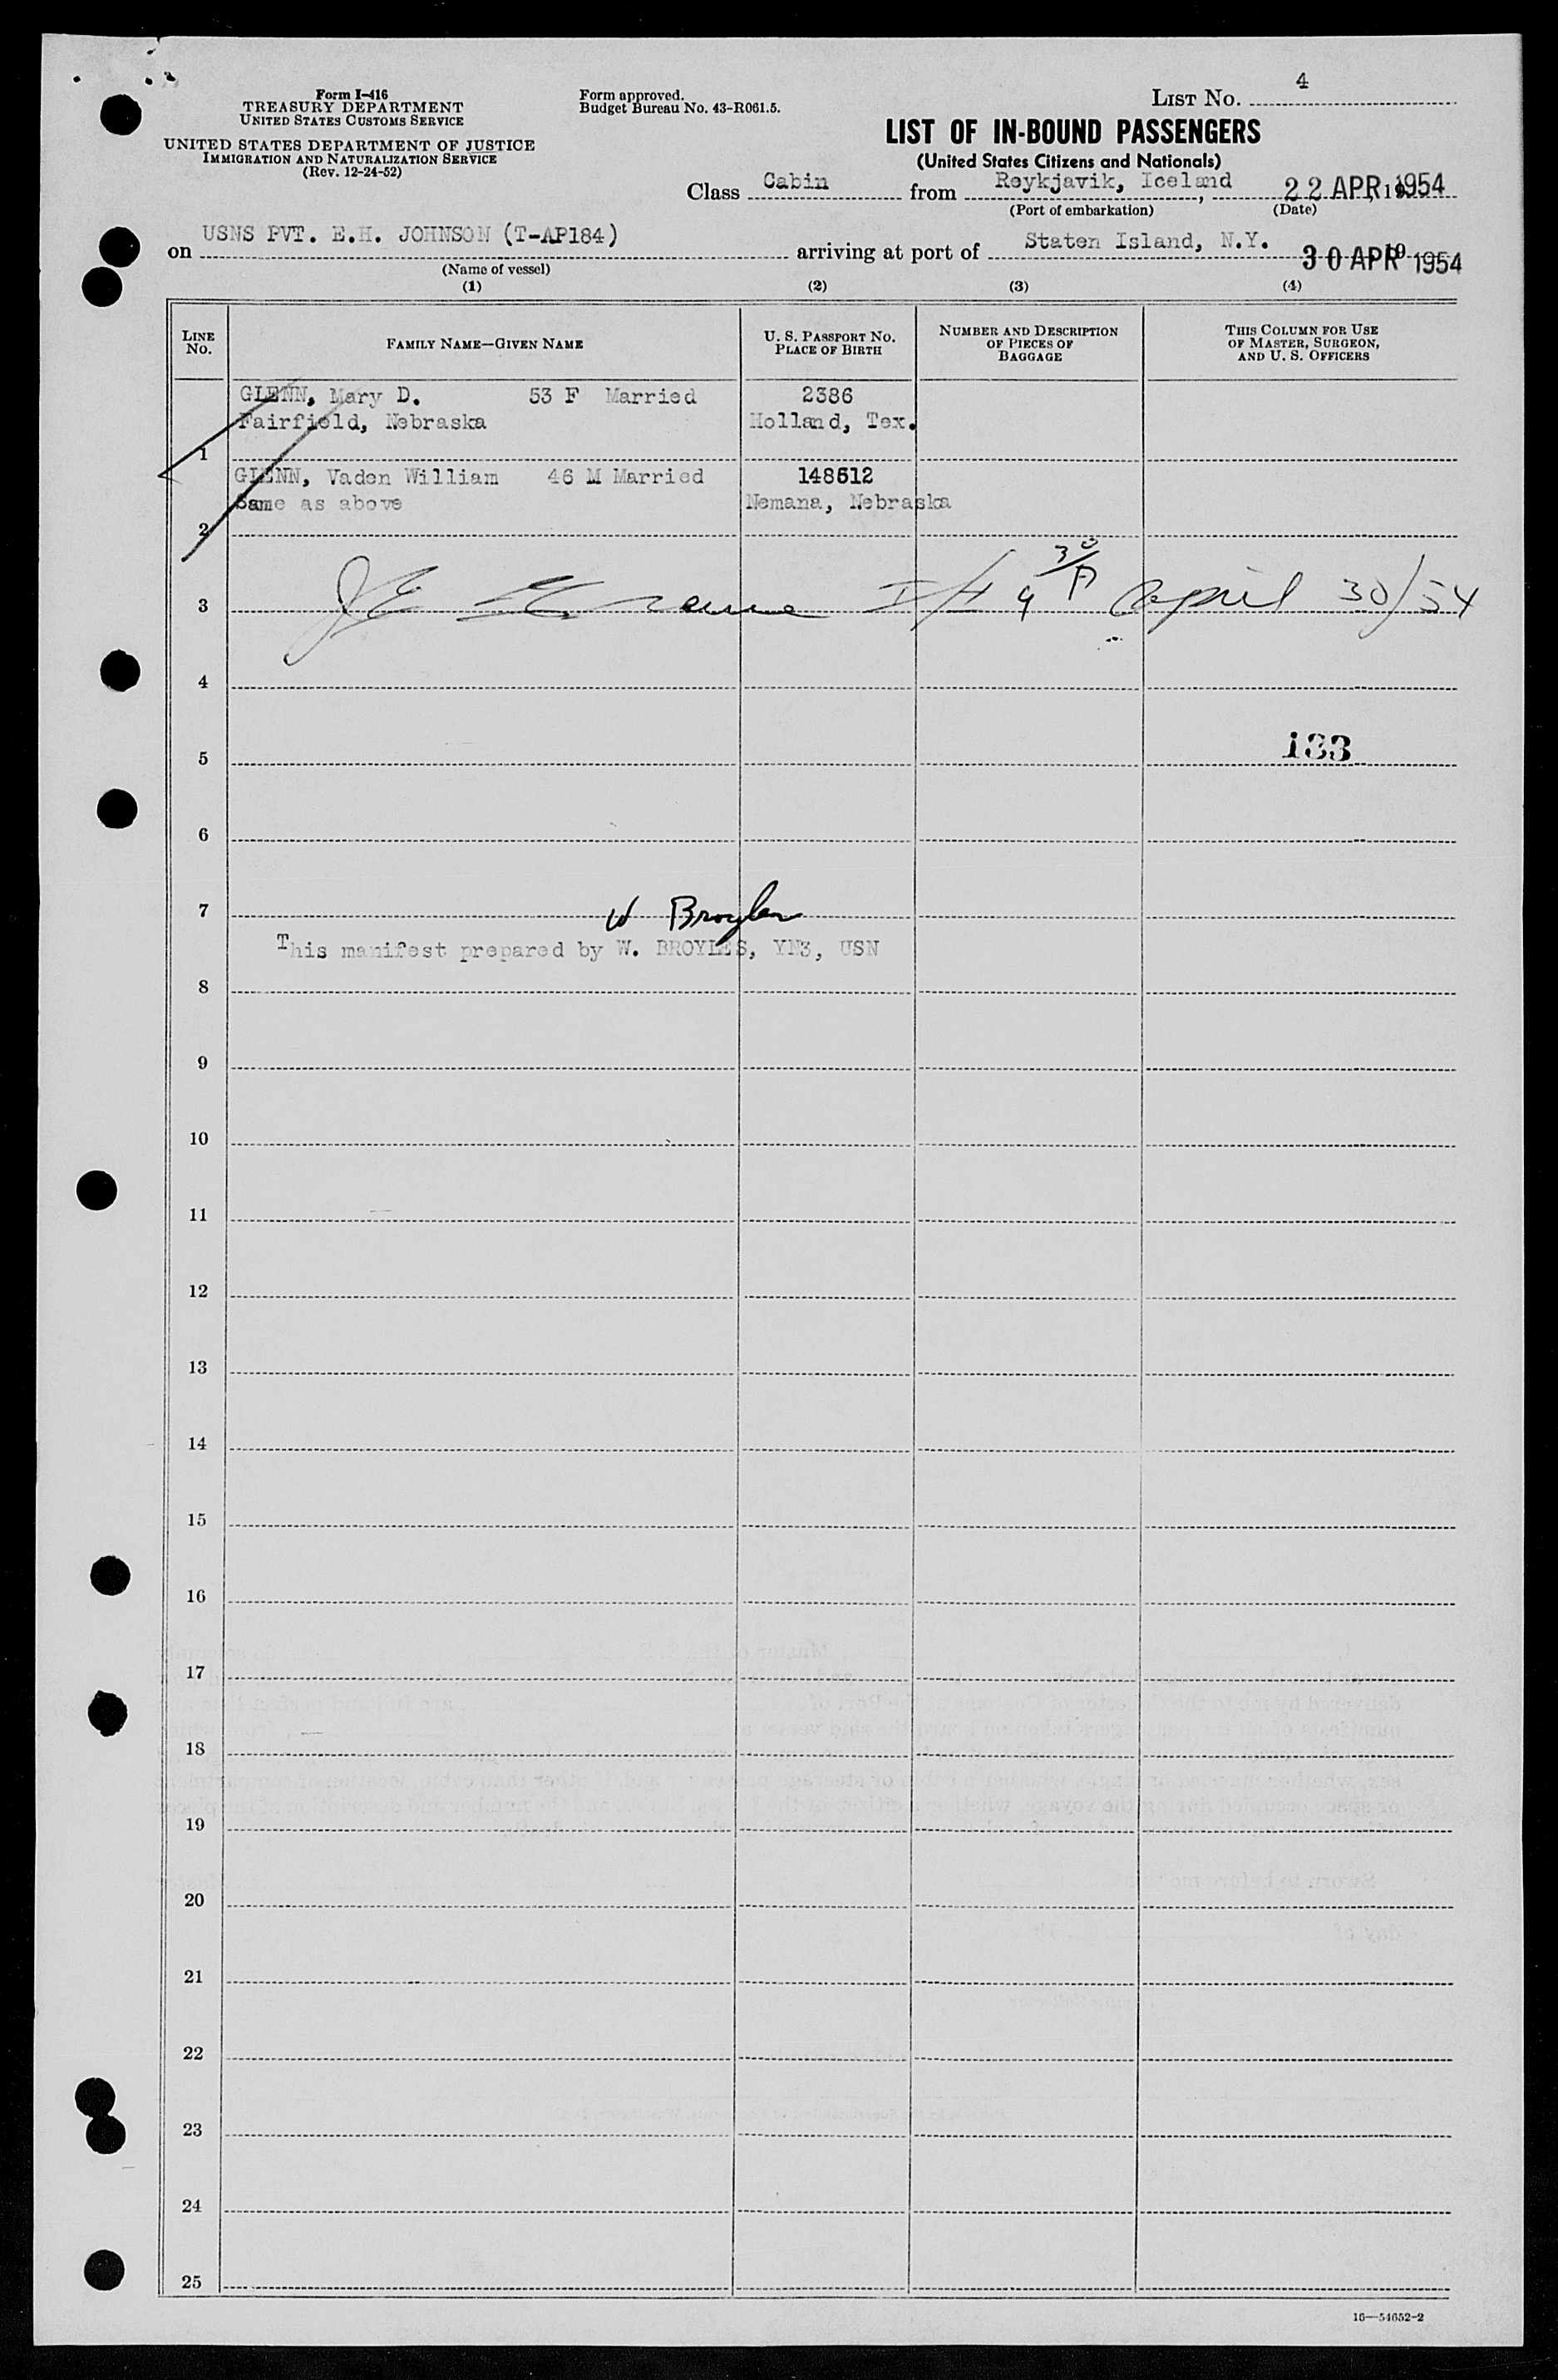 4
LIST NO.
Form I-416
TREASURY DEPARTMENT
UNITED STATES CUSTOMS SERVICE
UNITED STATES DEPARTMENT OF JUSTICE
IMMIGRATION AND NATURALIZATION SERVICE
(Rev. 12-24-52)
Form approved.
Budget Bureau No. 43-R061.5.
LIST OF IN-BOUND PASSENGERS
(United States Citizens and Nationals)
Class Cabin from Reykjavik, Iceland, 22 APR 1954
(Port of embarkation) (Date)
on USNS PVT. E.H. JOHNSON (T-AP184) arriving at port of Staten Island, N.Y. 30 APR 19 1954
(Name of vessel)
(1) (2) (3) (4)
LINE NO.
FAMILY NAME—GIVEN NAME
U. S. PASSPORT NO.
PLACE OF BIRTH
NUMBER AND DESCRIPTION
OF PIECES OF
BAGGAGE
THIS COLUMN FOR USE
OF MASTER, SURGEON,
AND U. S. OFFICERS
GLENN, Mary D. 53 F Married 2386
Fairfield, Nebraska Holland, Tex.
1
GLENN, Vaden William 46 M Married 148612
Same as above Nemana, Nebraska
2
3 April 30/54
4
133
5
6
7 W Broyles
This manifest prepared by W. BROYLES, YN3, USN
8
9
10
11
12
13
14
15
16
17
18
19
20
21
22
23
24
25
16—54652-2